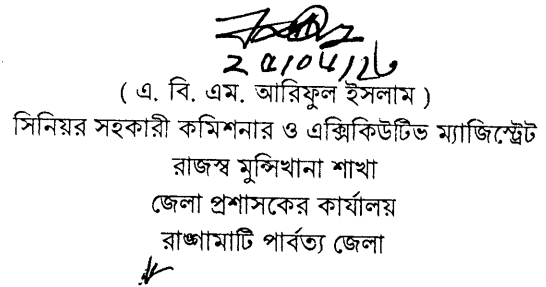 ( এ. বি. এম. আরিফুল ইসলাম )
সিনিয়র সহকারী কমিশনার ও এক্সিকিউটিভ ম্যাজিস্ট্রেট
রাজস্ব মুন্সিখানা শাখা
জেলা প্রশাসকের কার্যালয়
রাঙ্গামাটি পার্বত্য জেলা